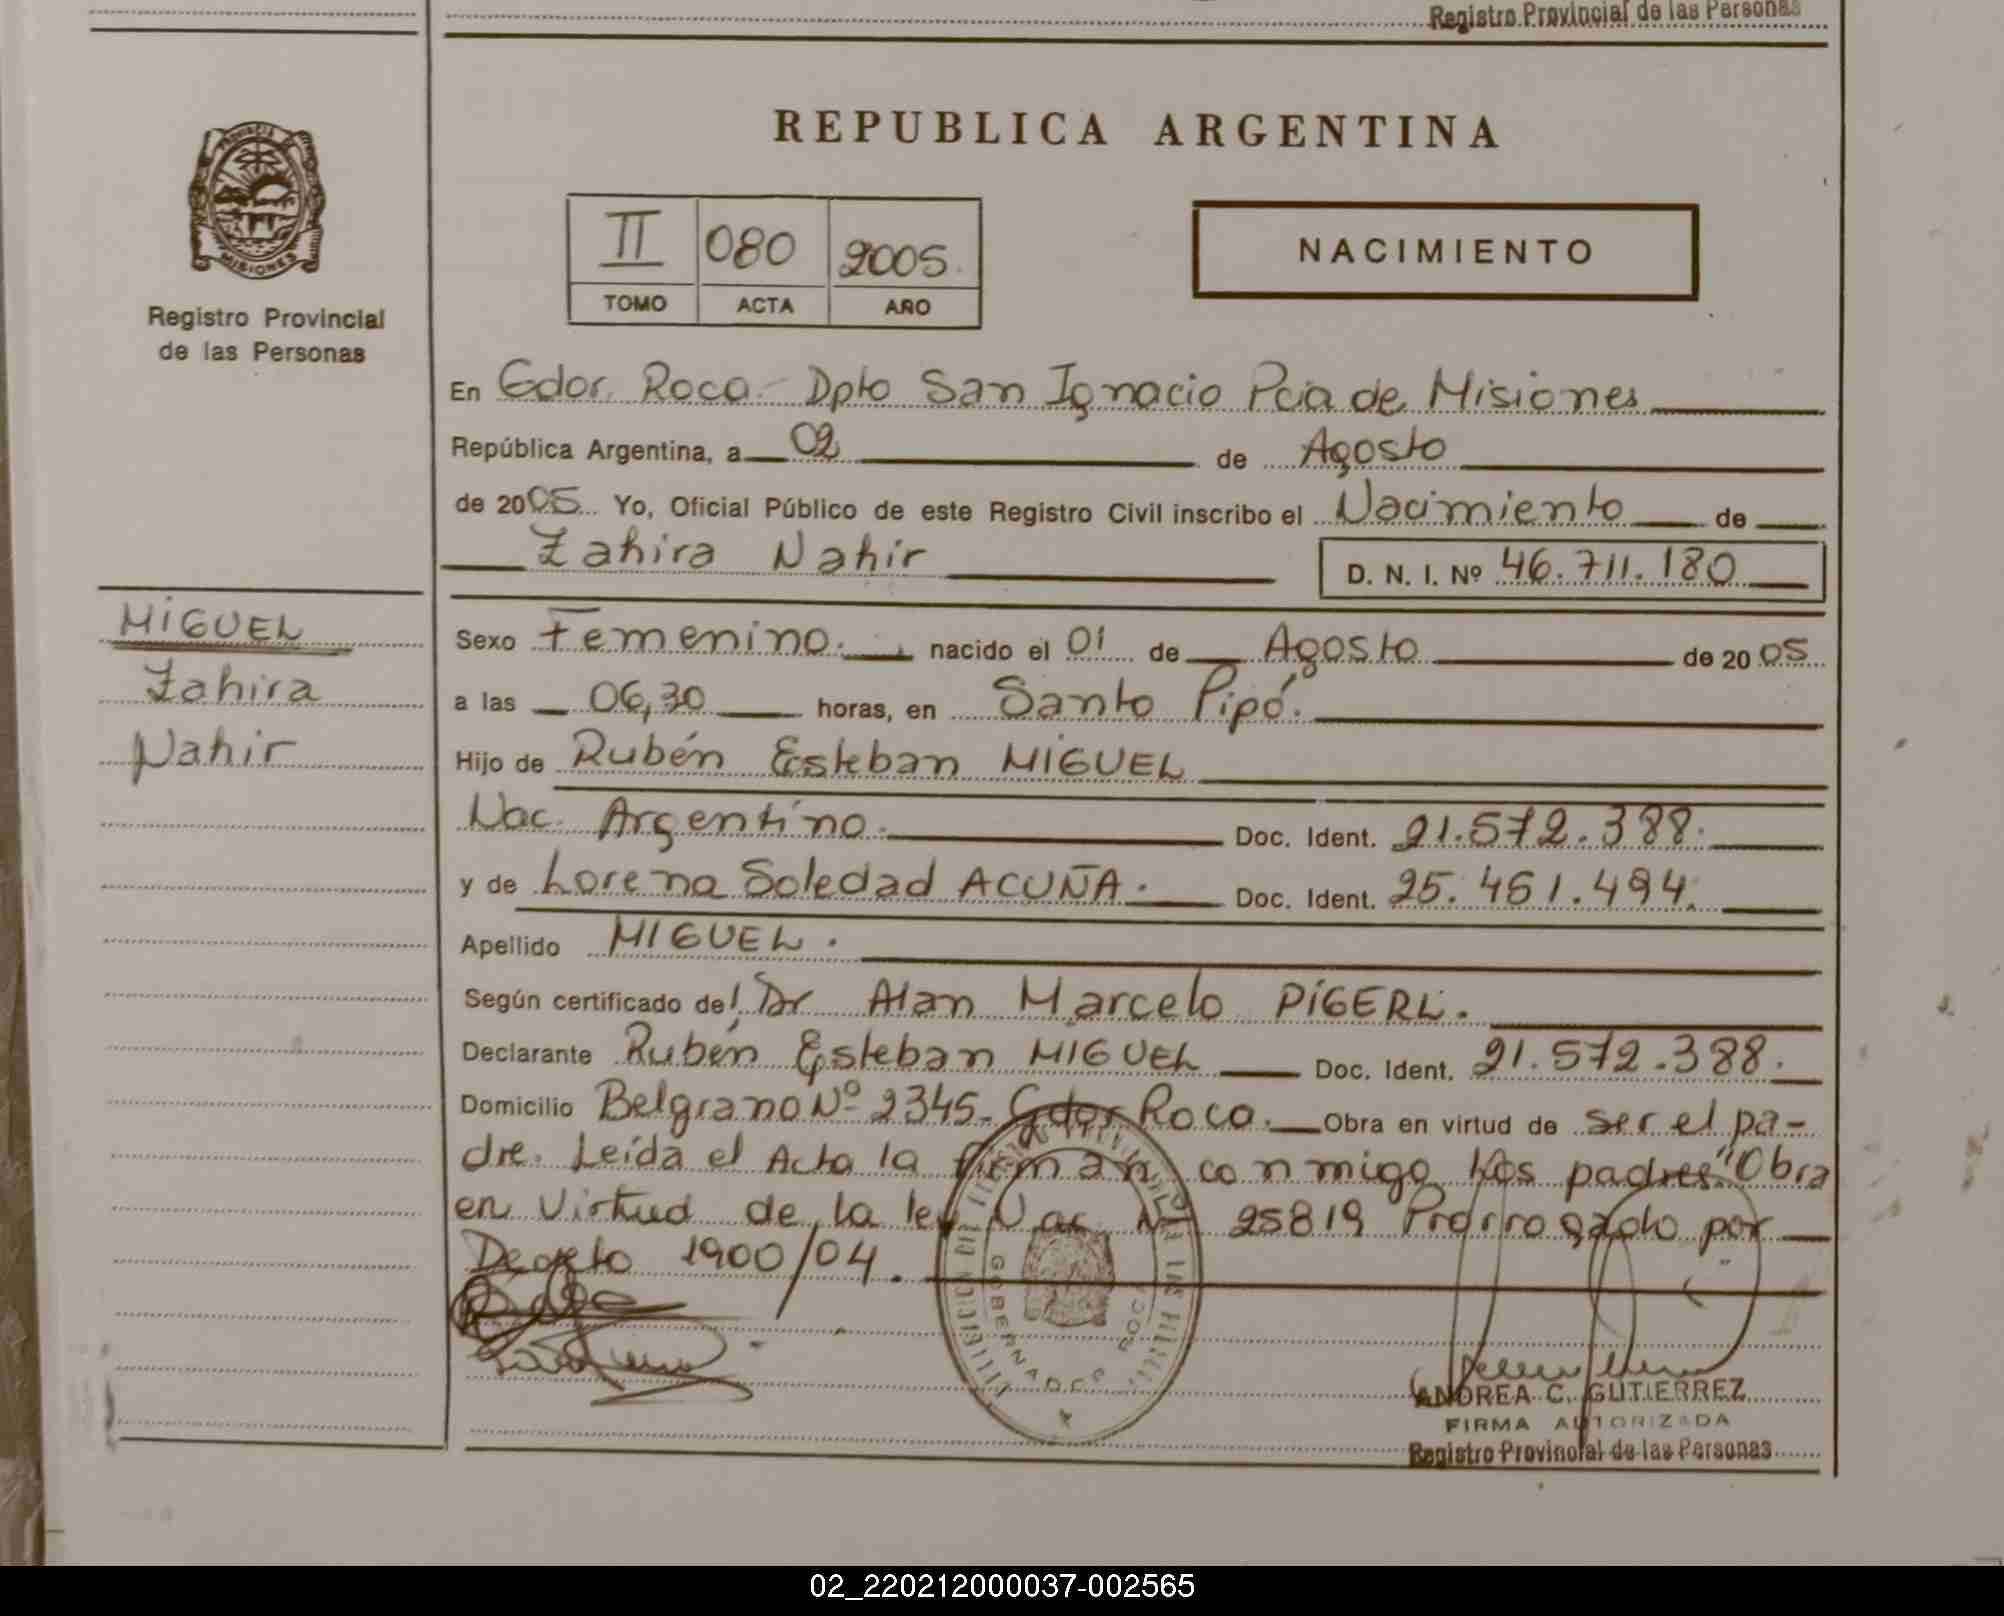 Registro Provincial de las Personas
REPUBLICA ARGENTINA
PROVINCIA
MISIONES
Registro Provincial
de las Personas
II 080 2005
TOMO ACTA AÑO
NACIMIENTO
En Gdor. Roca - Dpto San Ignacio Pcia de Misiones
República Argentina, a 02 de Agosto
de 2005 Yo, Oficial Público de este Registro Civil inscribo el Nacimiento de
Zahira Nahir D. N. I. Nº 46.711.180
MIGUEL
Zahira
Nahir
Sexo Femenino. nacido el 01 de Agosto de 2005
a las 06,30 horas, en Santo Pipó.
Hijo de Rubén Esteban MIGUEL
Nac. Argentino. Doc. Ident. 21.572.388.
y de Lorena Soledad ACUÑA. Doc. Ident. 25.461.494.
Apellido MIGUEL.
Según certificado del Dr Alan Marcelo PIGERL.
Declarante Rubén Esteban MIGUEL Doc. Ident. 21.572.388.
Domicilio Belgrano Nº 2345- Gdor Roca. Obra en virtud de ser el pa-
dre. Leída el Acta la firman conmigo los padres "Obra
en Virtud de la ley Nac Nº 25819 Prorrogado por
Decreto 1900/04.
GOBERNADOR ROCA
ANDREA C. GUTIERREZ
FIRMA AUTORIZADA
Registro Provincial de las Personas
02_220212000037-002565